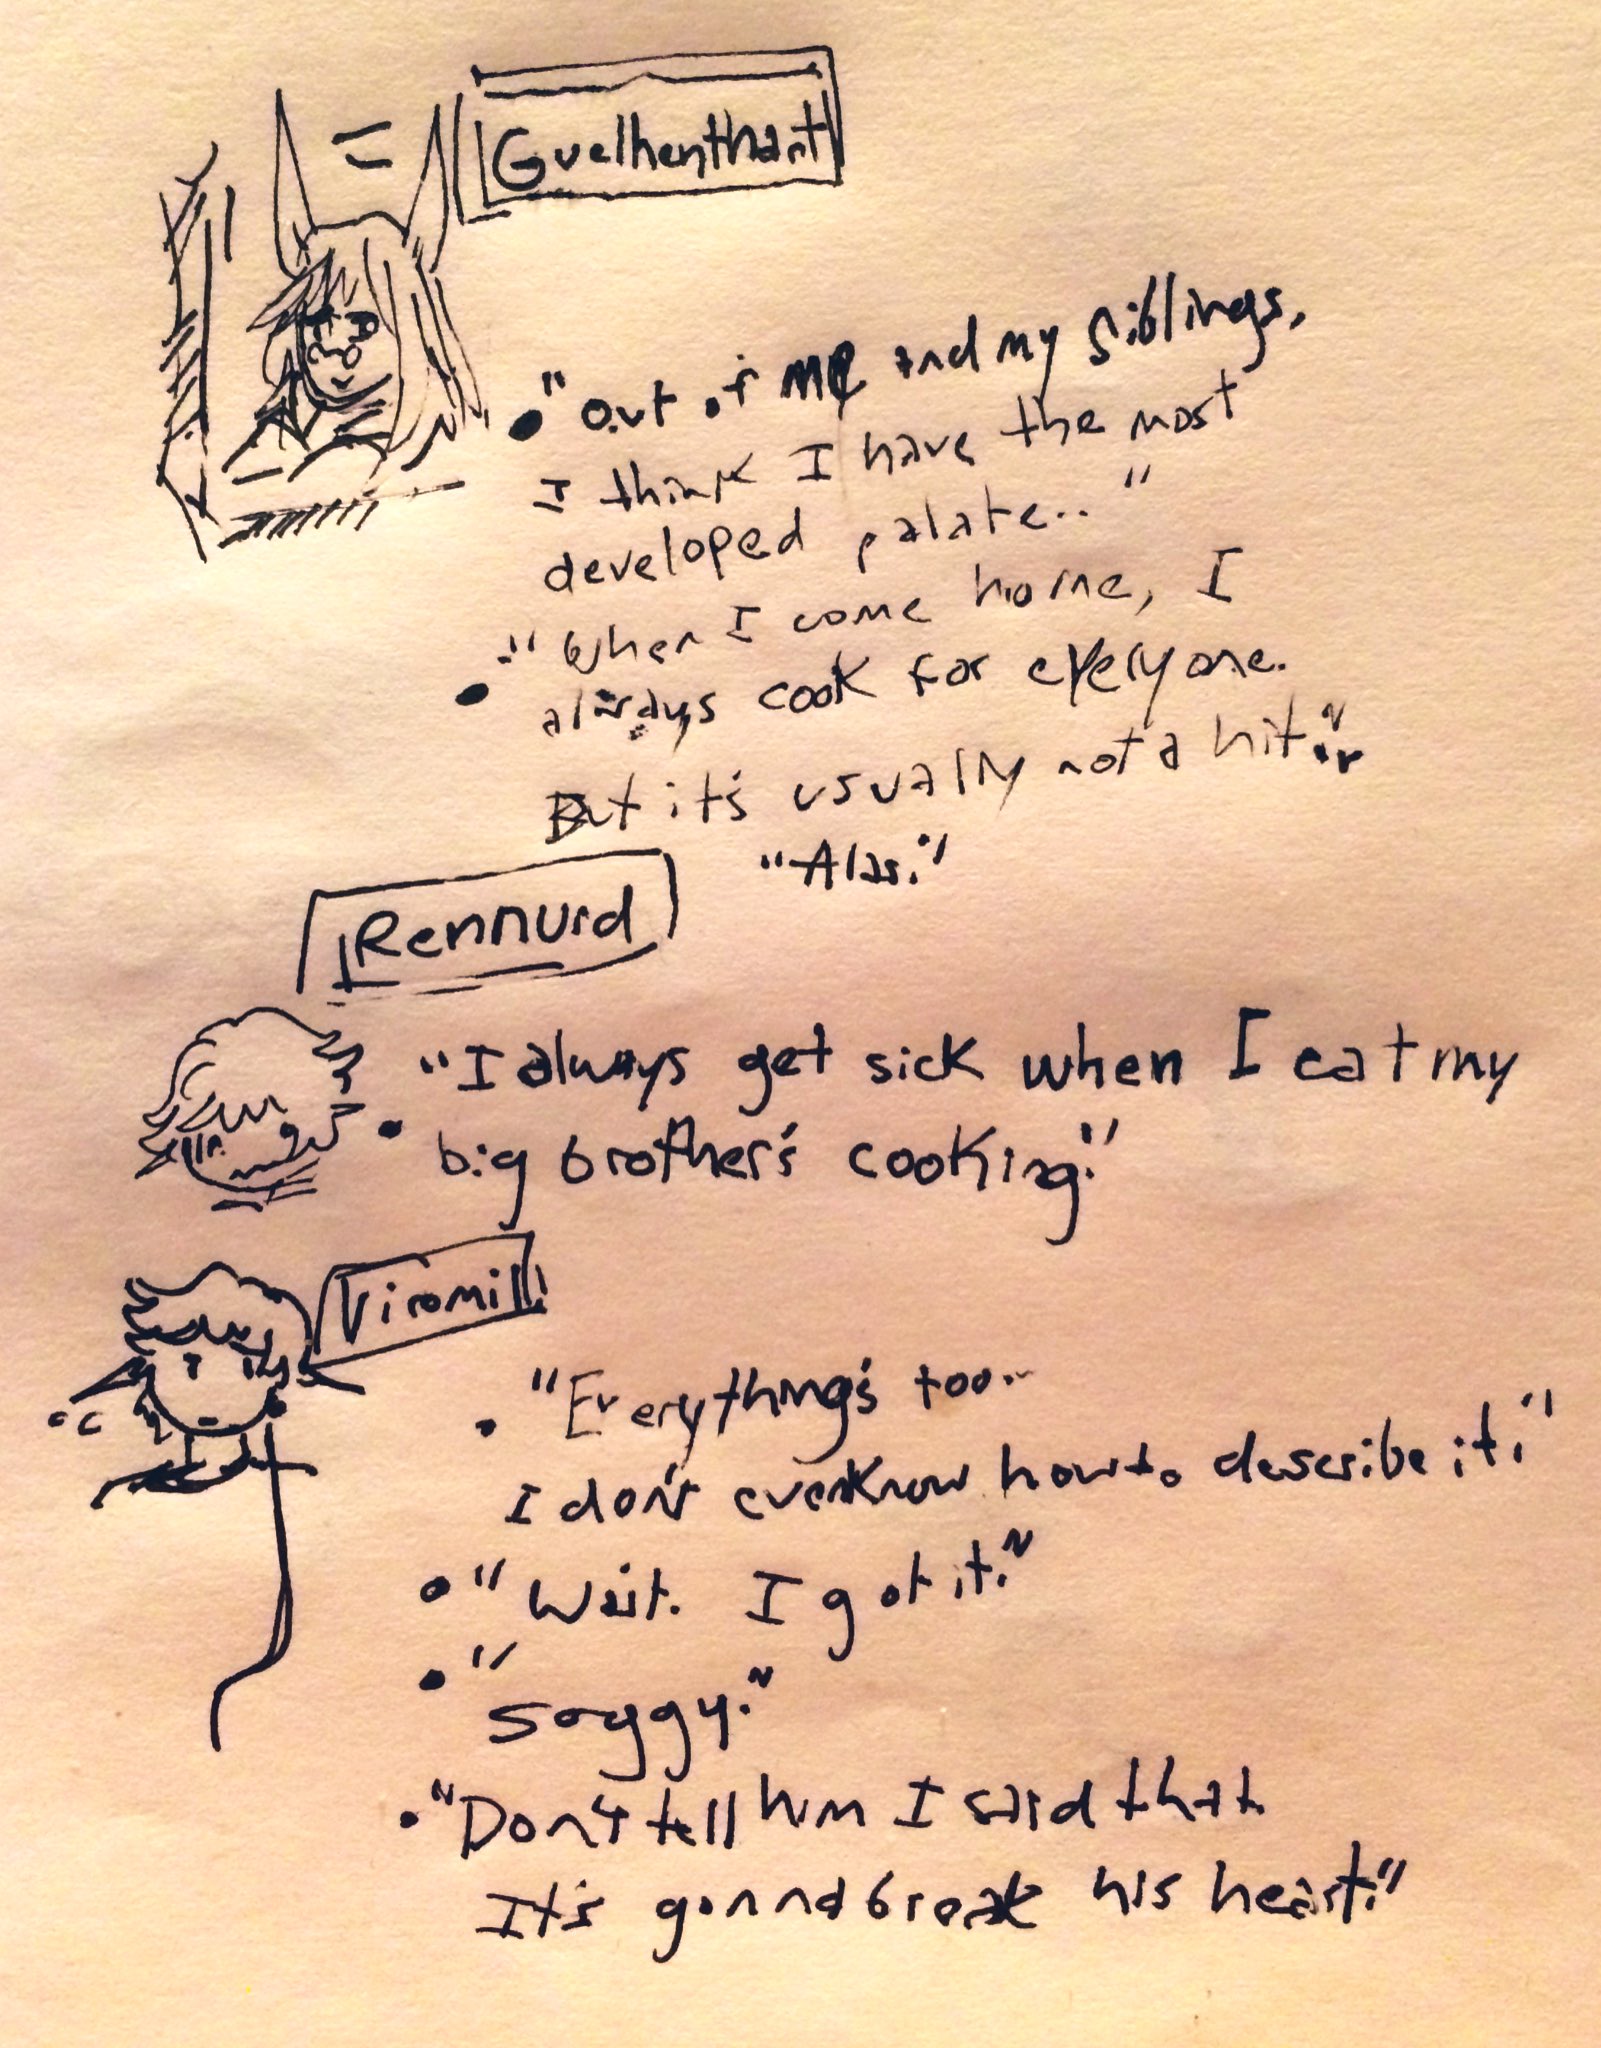 Guelhenthart
• "Out of me and my siblings,
I think I have the most
developed palate.."
• "When I come home, I
always cook for everyone.
But it's usually not a hit."
"Alas."
Rennurd
• "I always get sick when I eat my
big brother's cooking."
Viromill
• "Everything's too..
I don't even know how to describe it."
• "Wait. I got it."
• "Soggy."
• "Don't tell him I said that.
It's gonna break his heart."